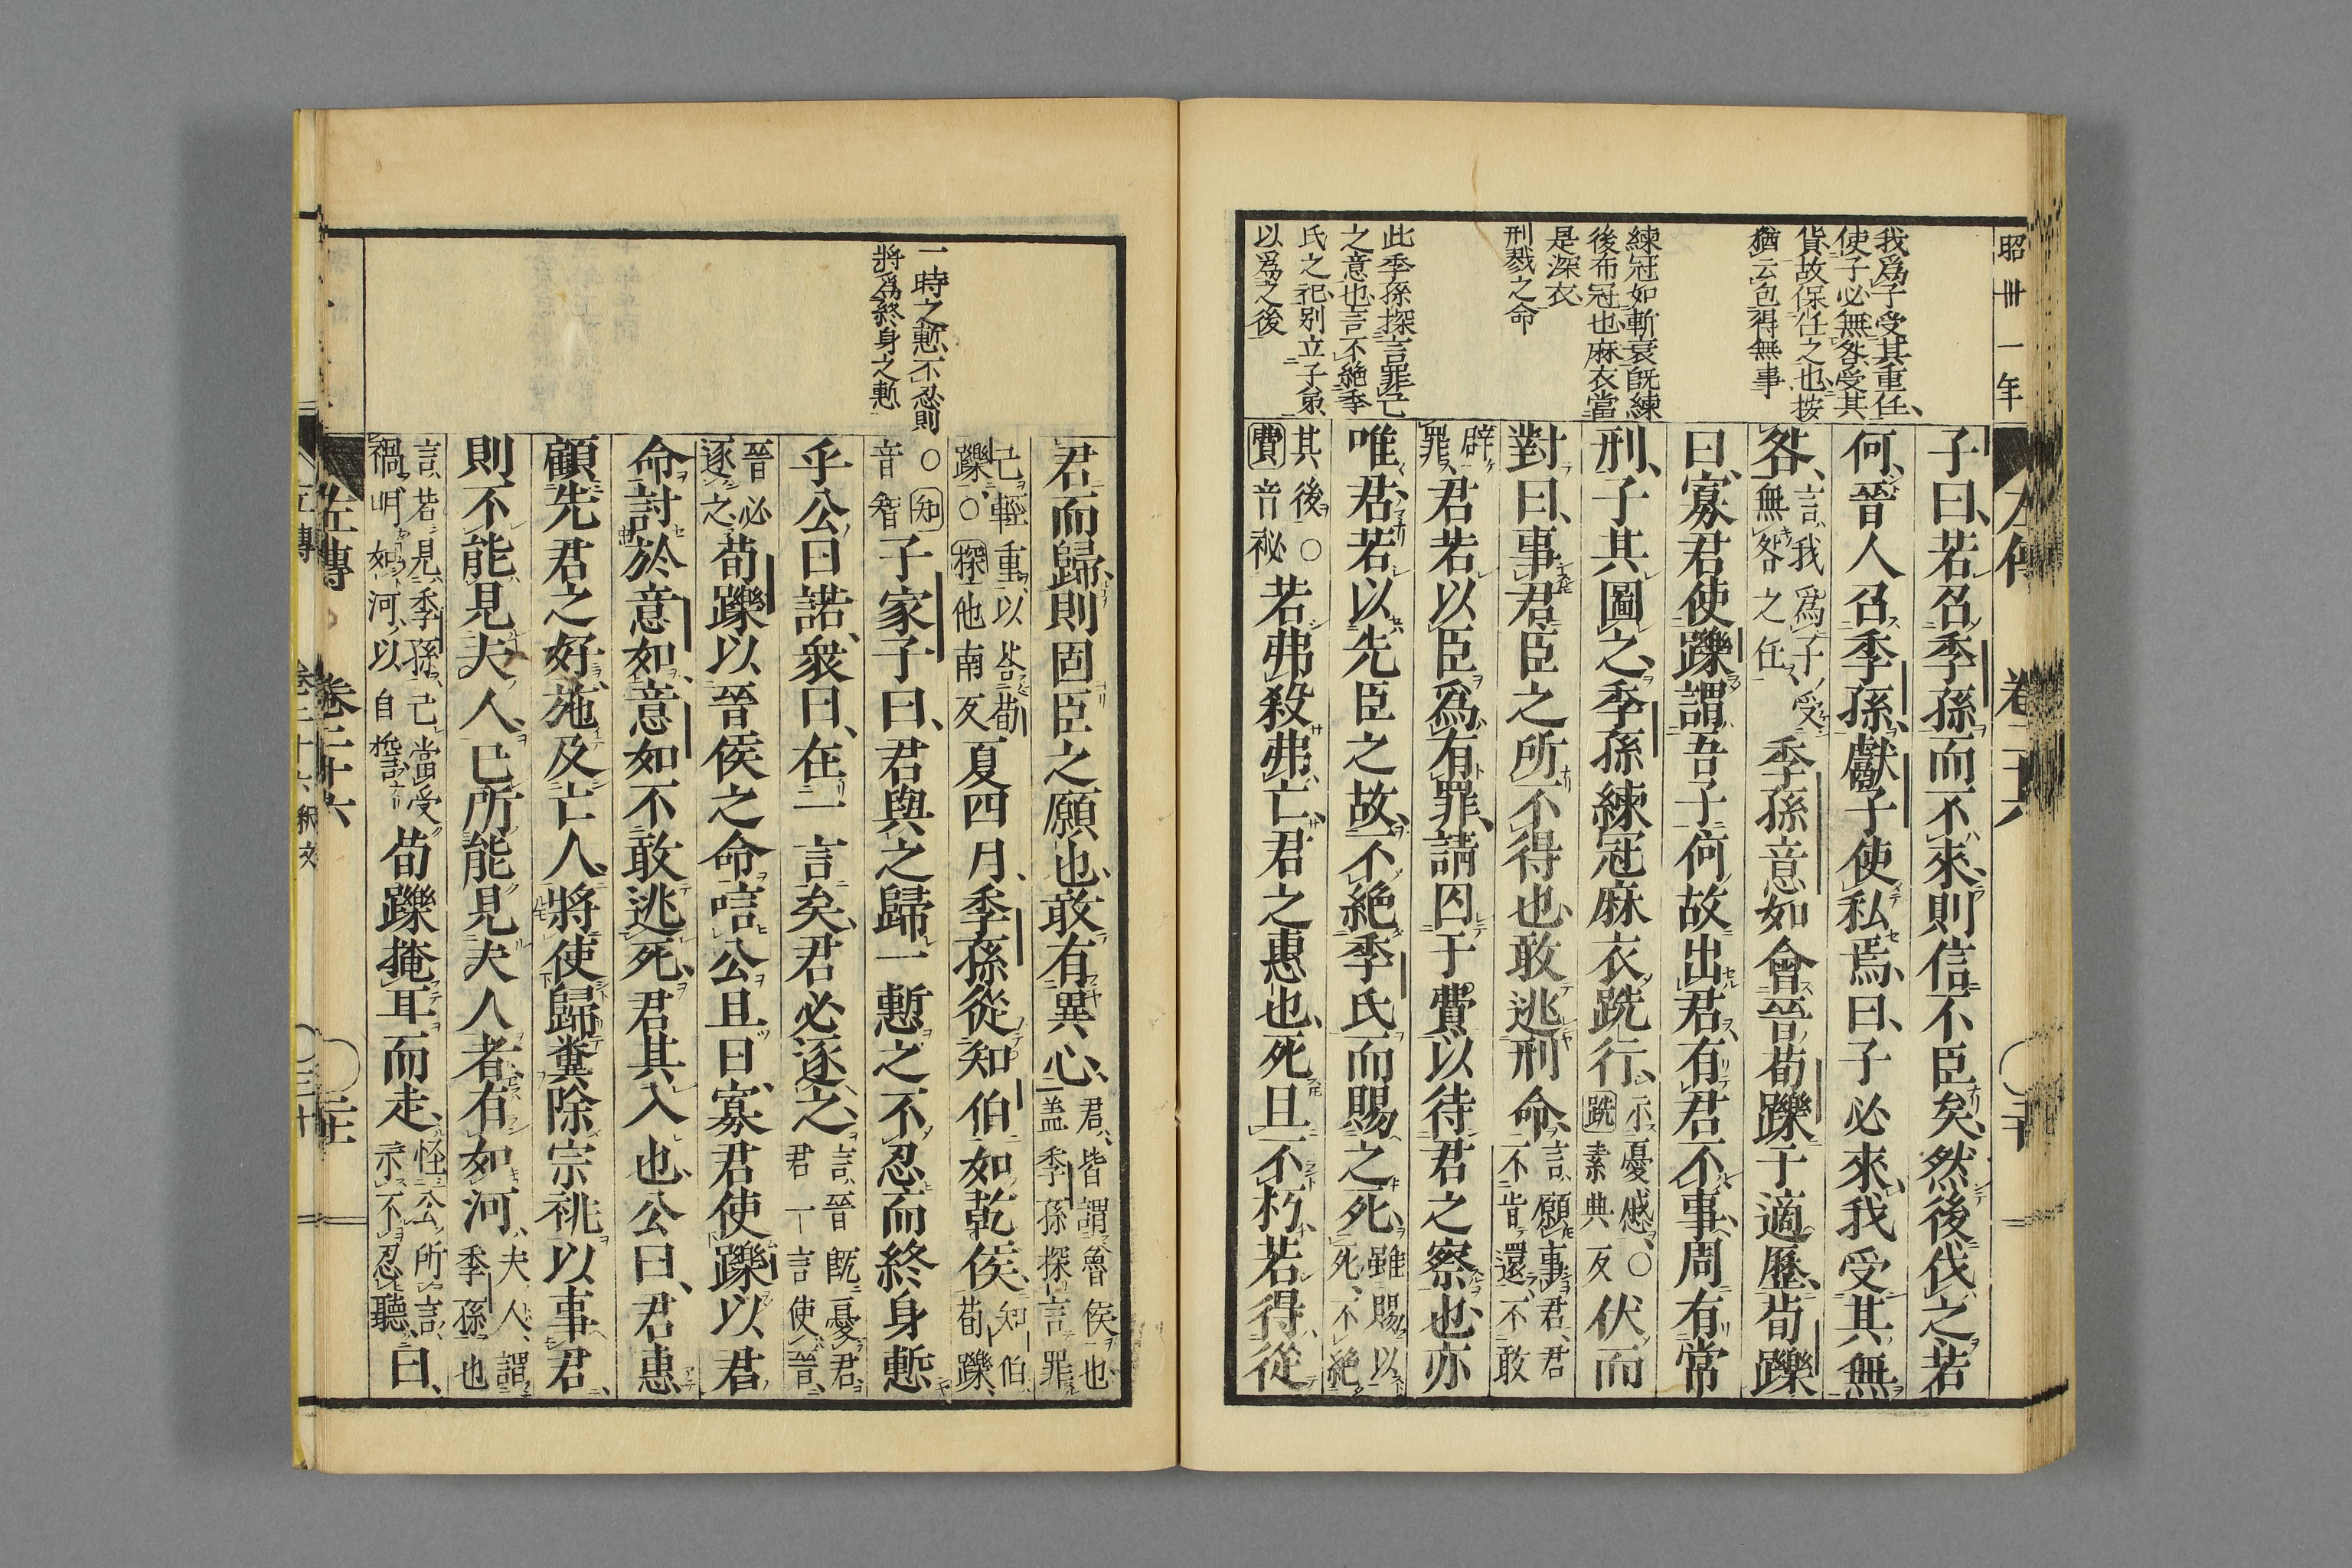 昭卅一年
我爲子受其重任、
使子必無咎受其
貨故保任之也按
猶云包得無事
練冠如斬衰既練
後布冠也麻衣當
是深衣
刑戮之命
此季孫探言罪己
之意也言不絶季
氏之祀別立子弟
以爲之後
左傳 卷二十六
子曰、若召季孫而不來、則信不臣矣、然後伐之若
何、晉人召季孫、獻子使私焉、曰、子必來、我受其無
咎、言、我爲子受無咎之任、季孫意如會晉荀躒于適歷、荀躒
曰、寡君使躒謂吾子何故出君、有君不事、周有常
刑、子其圖之、季孫練冠麻衣跣行、示憂慼、○跣素典反伏而
對曰、事君臣之所不得也、敢逃刑命、言、願事君、君不肯還、不敢
辟罪、君若以臣爲有罪、請囚于費以待君之察也、亦
唯君、若以先臣之故、不絶季氏而賜之死、雖賜以死、不絶
其後○費音祕若弗殺弗亡、君之惠也、死且不朽、若得從
一時之慙不忍則
將爲終身之慙
君而歸、則固臣之願也、敢有異心、君、皆謂魯侯也、蓋季孫探言罪
己輕重、以荅荀躒、○探他南反夏四月、季孫從知伯如乾侯、知伯、荀躒、
○知音智子家子曰、君與之歸一慙之不忍而終身慙
乎公曰諾、衆曰、在一言矣、君必逐之、言、晉既憂君、君一言使晉、
晉必逐之荀躒以晉侯之命唁公且曰寡君使躒以君
命討於意如、意如不敢逃死、君其入也、公曰、君惠
顧先君之好、施及亡人、將使歸糞除宗祧以事君、
則不能見夫人、已所能見夫人者、有如河、夫人、謂季孫也
言、若見季孫、己當受禍、明如河、以自誓荀躒掩耳而走、怪公所言、示不忍聽、曰、
左傳 卷二十六